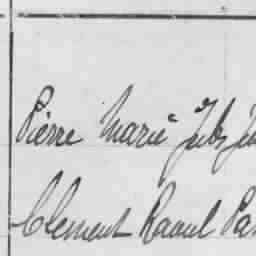 Pierre Marie Jules
Clement Raoul